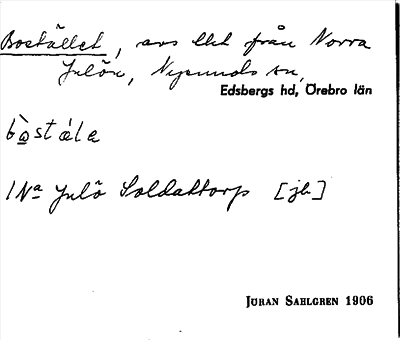 Bostället, avs lht från Norra
Julön, Nysunds sn,
Edsbergs hd, Örebro län
bo̱̊stäla
/Na Julö Soldattorp [jb]
JÖRAN SAHLGREN 1906